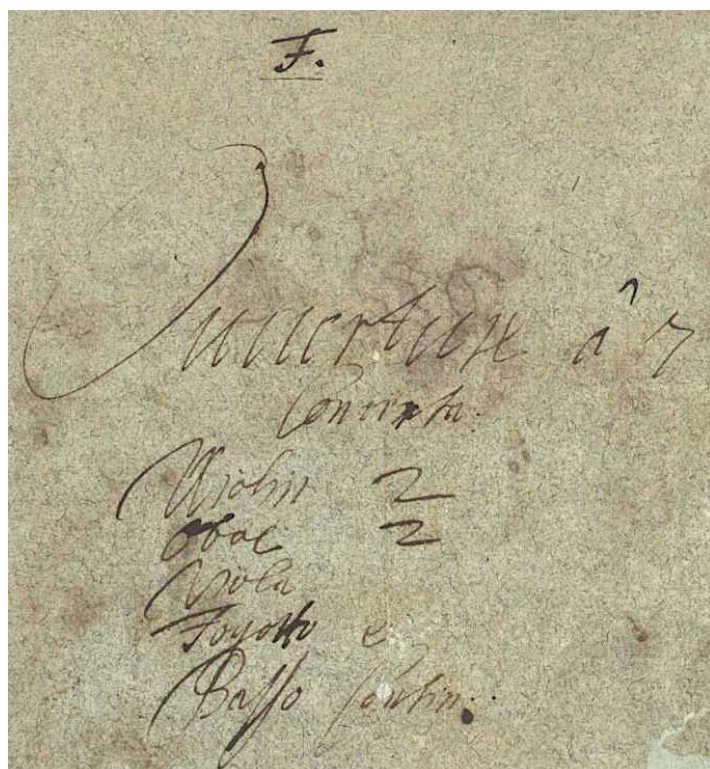 F.
Ouverture â 7
Concerto.
Violin 2
Oboe 2
Viola
Fogotto e
Basso Contin: